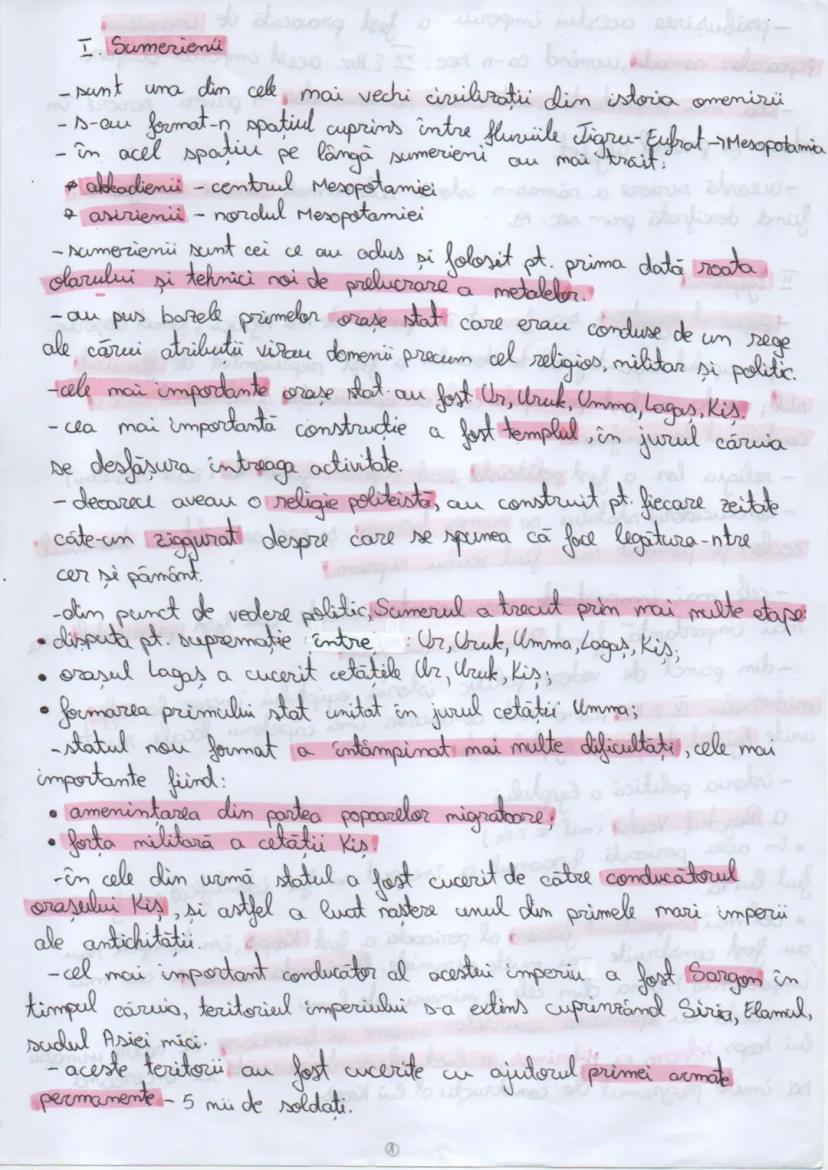 I. Sumerienii
- sunt una din cele mai vechi civilizații din istoria omenirii
- s-au format-n spațiul cuprins între fluviile Tigru-Eufrat→Mesopotamia
- în acel spațiu pe lângă sumerieni au mai trăit:
* akkadienii - centrul Mesopotamiei
* asirienii - nordul Mesopotamiei
- sumerienii sunt cei ce au adus și folosit pt. prima dată roata
olarului și tehnici noi de prelucrare a metalelor.
- au pus bazele primelor orașe stat care erau conduse de un rege
ale cărui atribuții vizau domenii precum cel religios, militar și politic.
- cele mai importante orașe stat au fost Ur, Uruk, Umma, Lagaș, Kiș.
- cea mai importantă construcție a fost templul, în jurul căruia
se desfășura întreaga activitate.
- deoarece aveau o religie politeistă, au construit pt. fiecare zeitate
câte-un ziggurat despre care se spunea că face legătura-ntre
cer și pământ.
- din punct de vedere politic, Sumerul a trecut prin mai multe etape
• disputa pt. supremație între : Ur, Uruk, Umma, Lagaș, Kiș;
• orașul Lagaș a cucerit cetățile Ur, Uruk, Kiș;
• formarea primului stat unitat în jurul cetății Umma;
- statul nou format a întâmpinat mai multe dificultăți, cele mai
importante fiind:
• amenințarea din partea popoarelor migratoare;
• forța militară a cetății Kiș!
- în cele din urmă statul a fost cucerit de către conducătorul
orașului Kiș, și astfel a luat naștere unul din primele mari imperii
ale antichității.
- cel mai important conducător al acestui imperiu a fost Sargon în
timpul căruia, teritoriul imperiului s-a extins cuprinzând Siria, Elamul,
sudul Asiei mici.
- aceste teritorii au fost cucerite cu ajutorul primei armate
permanente - 5 mii de soldați.
1